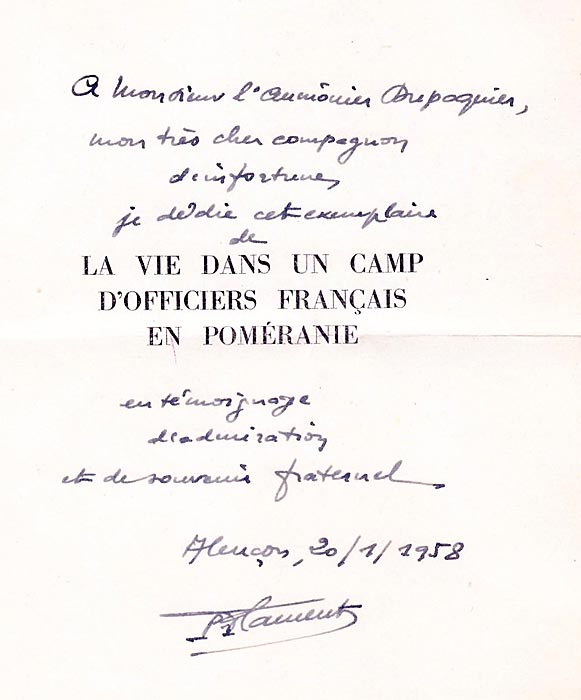 A Monsieur l'Aumônier Dupaquier,
mon très cher compagnon
d'infortune,
je dédie cet exemplaire
de
LA VIE DANS UN CAMP
D'OFFICIERS FRANÇAIS
EN POMÉRANIE
en témoignage
d'admiration
et de souvenir fraternel
Alençon, 20/1/1958